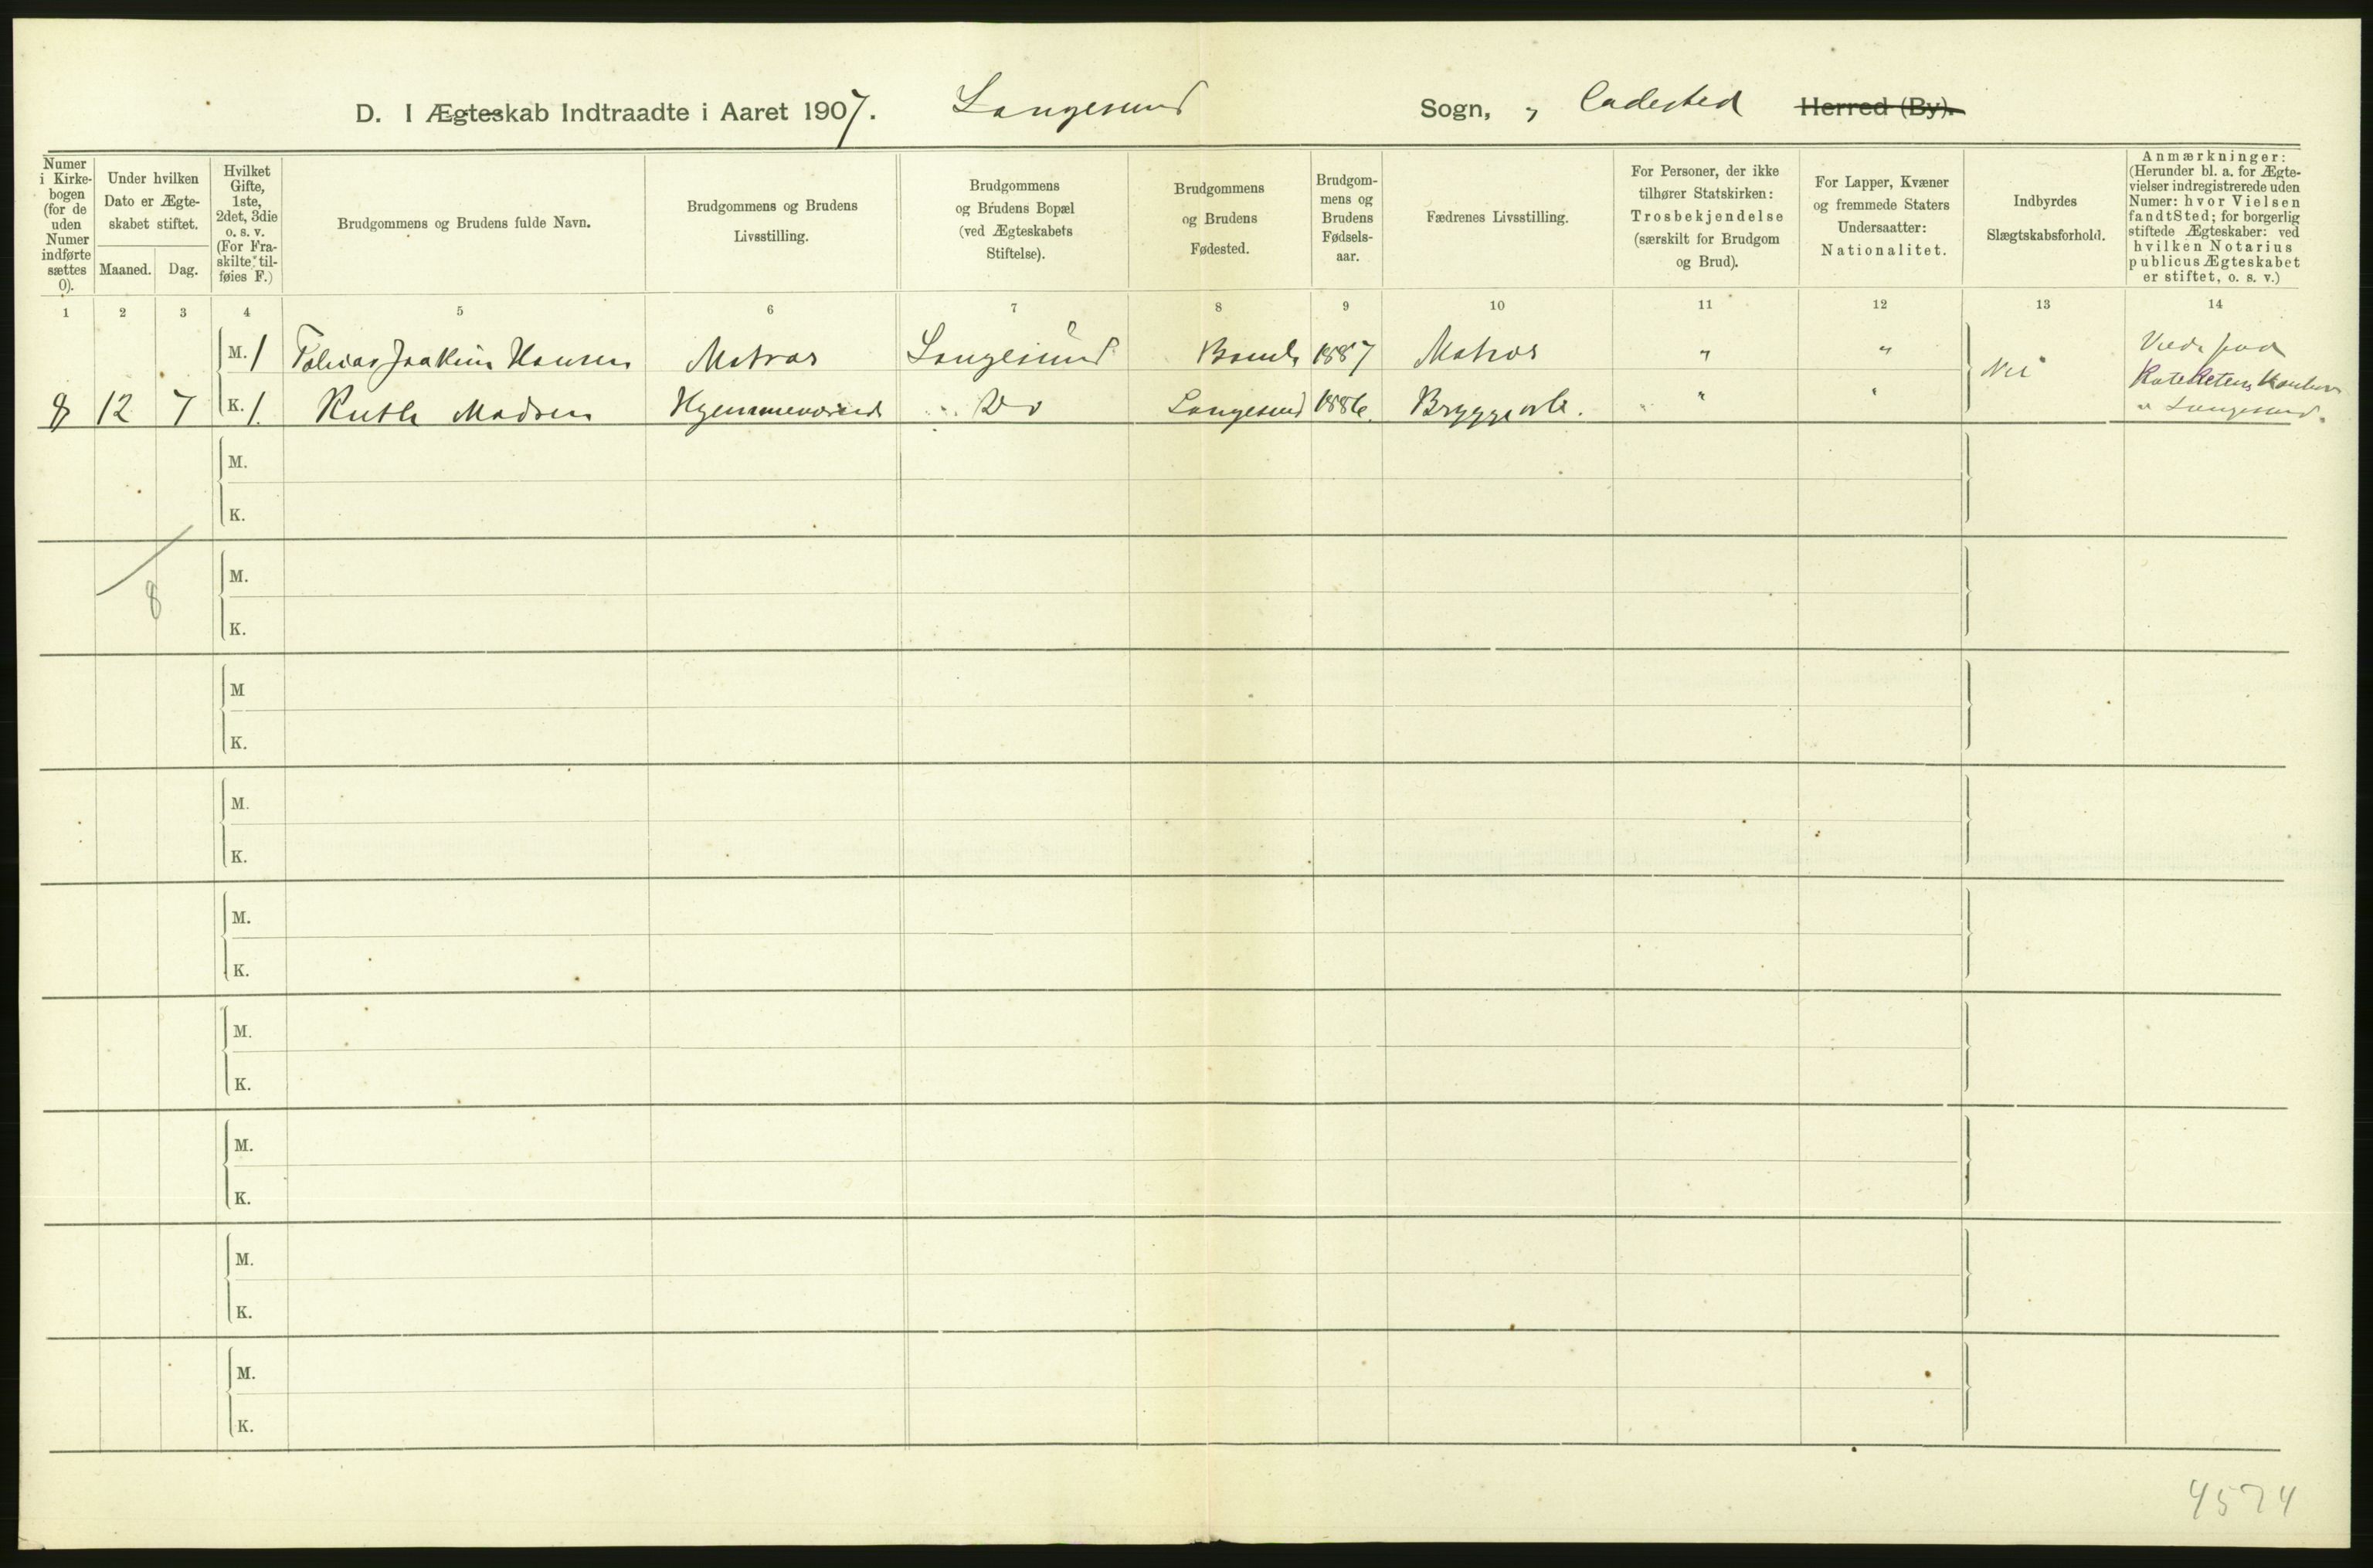 D. I Ægteskab Indtraadte i Aaret 1907. Langesund Sogn, „ Ladested Herred (By).
Numer i Kirkebogen (for de uden Numer indførte sættes 0).
Under hvilken Dato er Ægteskabet stiftet.
Maaned. Dag.
Hvilket Gifte, 1ste, 2det, 3die o. s. v. (For Fraskilte tilføies F.)
Brudgommens og Brudens fulde Navn.
Brudgommens og Brudens Livsstilling.
Brudgommens og Brudens Bopæl (ved Ægteskabets Stiftelse).
Brudgommens og Brudens Fødested.
Brudgommens og Brudens Fødselsaar.
Fædrenes Livsstilling.
For Personer, der ikke tilhører Statskirken: Trosbekjendelse (særskilt for Brudgom og Brud).
For Lapper, Kvæner og fremmede Staters Undersaatter: Nationalitet.
Indbyrdes Slægtskabsforhold.
Anmærkninger: (Herunder bl. a. for Ægtevielser indregistrerede uden Numer: hvor Vielsen fandt Sted; for borgerlig stiftede Ægteskaber: ved hvilken Notarius publicus Ægteskabet er stiftet, o. s. v.)
1 2 3 4 5 6 7 8 9 10 11 12 13 14
M. 1 Tobias Joakim Hansen Matros Langesund Bamle 1887 Matros " " Nei Viede paa
Kateketens Kontor
8 12 7 K. 1. Ruth Madsen Hjemmeværende Do Langesund 1886. Bryggearb. " " " Langesund.
M.
K.
M.
8
K.
M
K.
M.
K.
M.
K.
M.
K.
M.
K.
M.
K.
M.
K.
4574